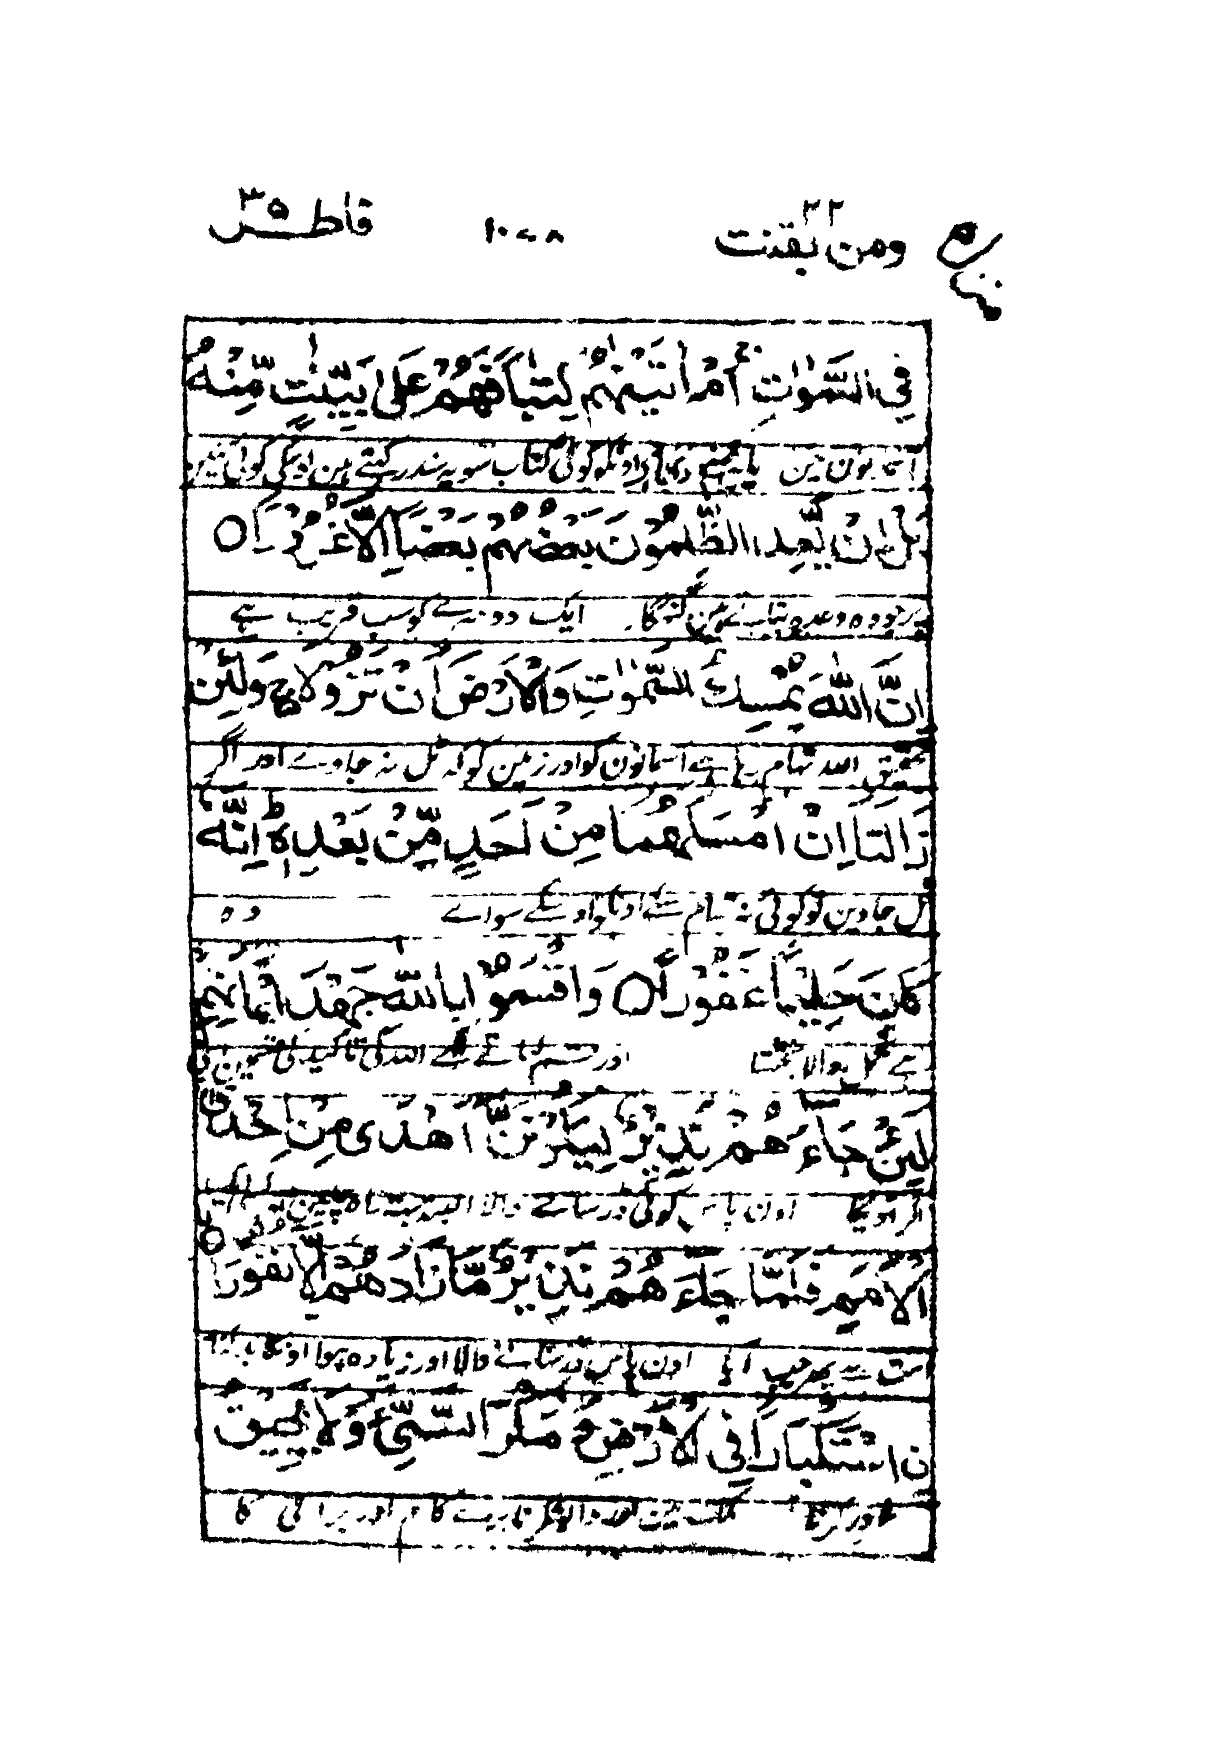 ومن یقنت ۲۲ ۱۰۷۸ فاطر ۳۵
فِي السَّمٰوٰتِ أَمْ اٰتَيْنٰهُمْ كِتٰبًا فَهُمْ عَلٰى بَيِّنَتٍ مِّنْهُ
کوئی کتاب سو یہ سند رکھتے ہین اوسکی کوئی نہین
بَلْ إِنْ يَّعِدُ الظّٰلِمُوْنَ بَعْضُهُمْ بَعْضًا اِلَّا غُرُوْرًا ○
وعدہ ایک دوسرے کو سب فریب ہے
اِنَّ اللّٰهَ يُمْسِكُ السَّمٰوٰتِ وَالْاَرْضَ اَنْ تَزُوْلَا ۚ وَلَئِنْ
تحقیق اللہ تہام رہا ہے اسمانون کو اور زمین کو کہ ٹل نہ جاوے اور اگر
زَالَتَا اِنْ اَمْسَكَهُمَا مِنْ اَحَدٍ مِّنْ بَعْدِهٖ ؕ اِنَّهٗ
ٹل جاوین تو کوئی نہ تہام سکے اونکو اوسکے سواے وہ
كَانَ حَلِيْمًا غَفُوْرًا ○ وَاَقْسَمُوْا بِاللّٰهِ جَهْدَ اَيْمَانِهِمْ
ہے تحمل والا بخشتا اور قسم کہاتے تہے اللہ کی تاکید کی قسمین اپنی
لَئِنْ جَآءَهُمْ نَذِيْرٌ لَّيَكُوْنُنَّ اَهْدٰى مِنْ اِحْدَى
اگر آویگا اون پاس کوئی ڈر سنانے والا البتہ
الْاُمَمِ فَلَمَّا جَآءَهُمْ نَذِيْرٌ مَّا زَادَهُمْ اِلَّا نُفُوْرًا ○
امت سے پھر جب آیا اون پاس ڈر سنانے والا اور زیادہ ہوا اونکا بدکنا
نِ اسْتِكْبَارًا فِي الْاَرْضِ وَمَكْرَ السَّيِّئِ وَلَا يَحِيْقُ
غرور کرنا ملک مین اور داؤ کرنا برے کام اور برائی کا